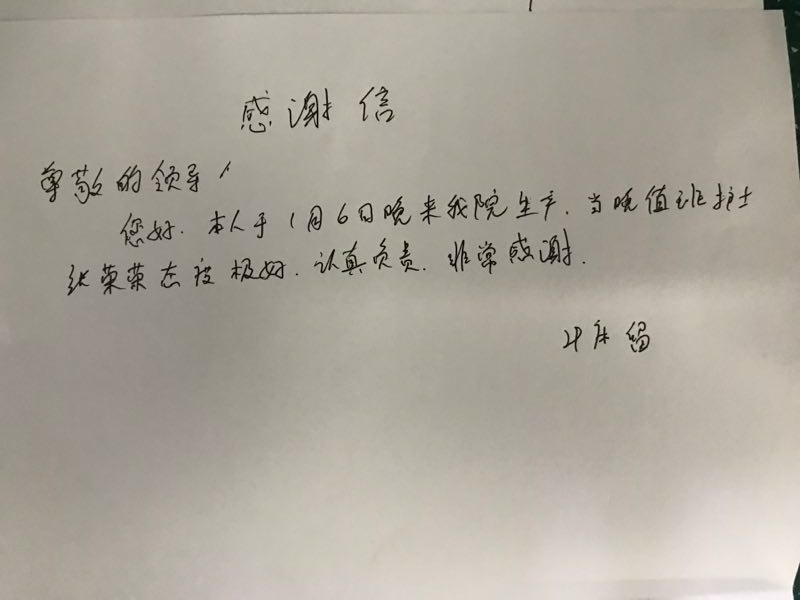 感谢信
尊敬的领导,
您好.本人于1月6日晚来我院生产.当晚值班护士
张荣荣态度极好.认真负责.非常感谢.
床留